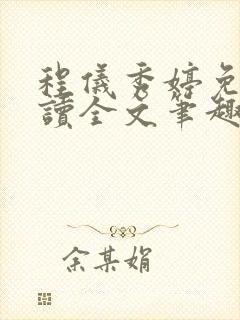 程儀秀婷免
讀全文筆趣
余某娟